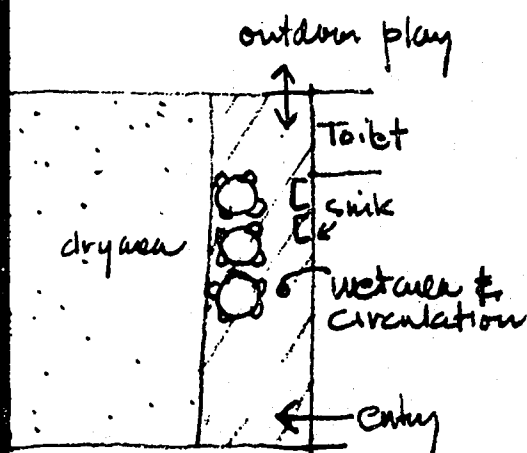 outdoor play
Toilet
sink
dry area
wet area &
circulation
entry